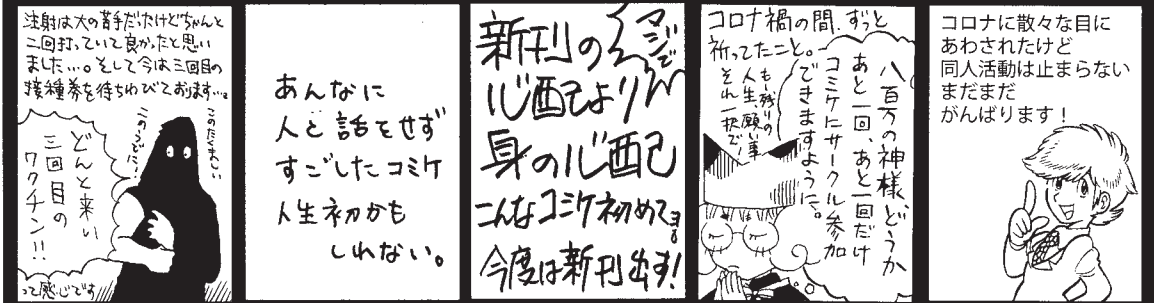 注射は大の苦手だったけどちゃんと
二回打っていて良かったと思い
ました…。そして今は三回目の
接種券を待ちわびております…。
このたくましい
このうでに!
どんと来い
三回目の
ワクチン!!
って感じです
あんなに
人と話をせず
すごしたコミケ
人生初かも
しれない。
マジで
新刊の
心配より
身の心配
こんなコミケ初めてヨ。
今度は新刊出す!
コロナ禍の間、ずっと
祈ってたこと。
八百万の神様、どうか
あと一回、あと一回だけ
コミケにサークル参加
できますように。
も〜残りの
人生、願い事
それ一択で!
コロナに散々な目に
あわされたけど
同人活動は止まらない
まだまだ
がんばります!